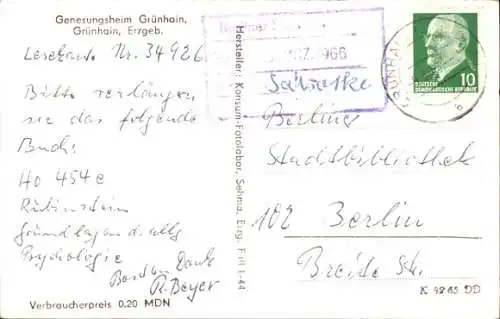 Genesungsheim Grünhain,
Grünhain, Errgeb.
Lesekarte Nr. 34926
Bitte verlängern
sie das folgende
Buch:
Ho 454 e
Rubinstein
Grundlagen d. allg.
Psychologie
Besten Dank
R. Beyer
Verbraucherpreis 0.20 MDN
Hersteller: Konsum-Fotolabor, Sehma, Errg. F III 1-44
966
GRÜNHAI
DEUTSCHE
DEMOKRATISCHE REPUBLIK
10
Berliner
Stadtbibliothek
102 Berlin
Breite Str.
K 4265 DD